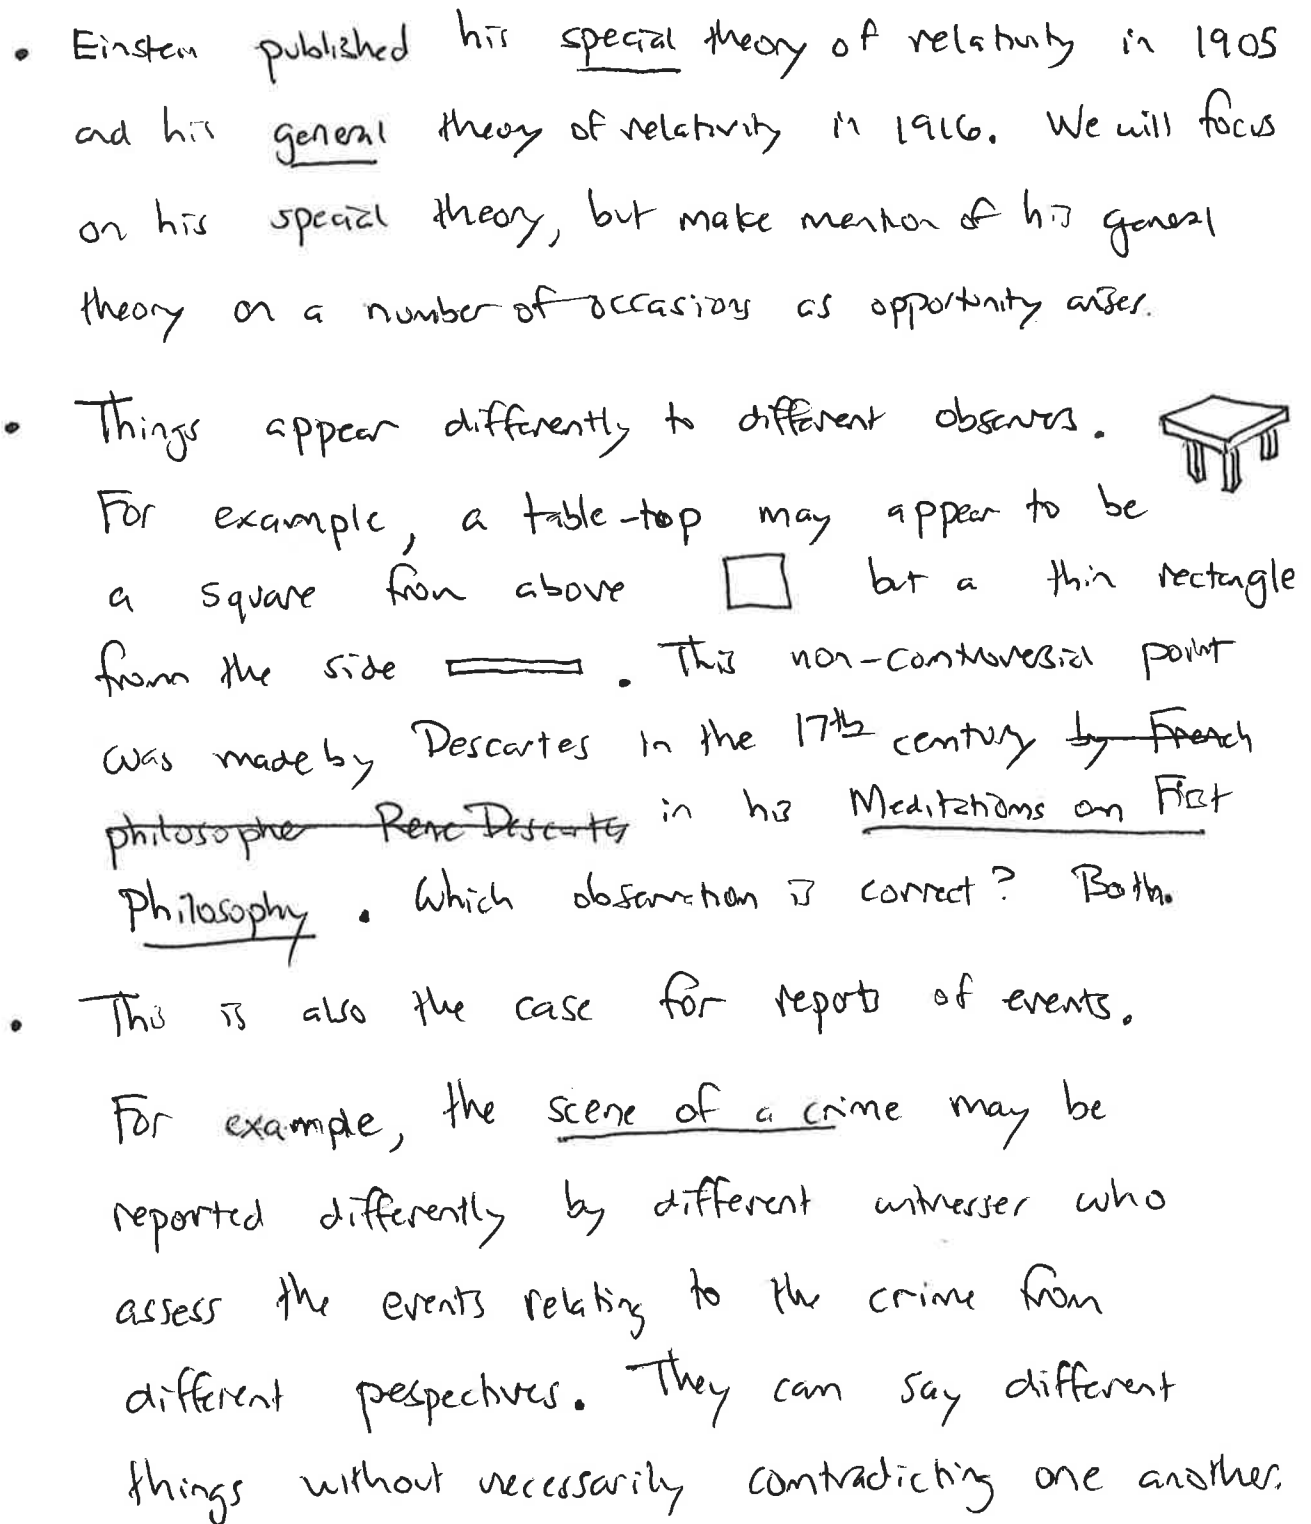 • Einstein published his special theory of relativity in 1905
and his general theory of relativity in 1916. We will focus
on his special theory, but make mention of his general
theory on a number of occasions as opportunity arises.
• Things appear differently to different observers.
For example, a table-top may appear to be
a square from above but a thin rectangle
from the side . This non-controversial point
was made by Descartes in the 17th century by French
philosopher Rene Descartes in his Meditations on First
Philosophy. Which observation is correct? Both.
• This is also the case for reports of events.
For example, the scene of a crime may be
reported differently by different witnesses who
assess the events relating to the crime from
different pespectives. They can say different
things without necessarily contradicting one another.